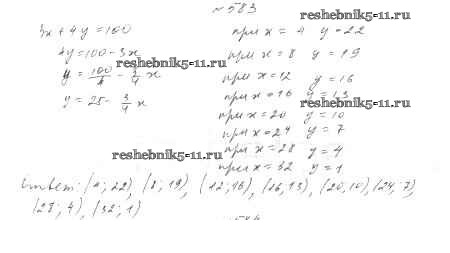 №583
3x + 4y = 100
4y = 100 - 3x
y = 100/4 - 3/4 x
y = 25 - 3/4 x
при x = 4 y = 22
при x = 8 y = 19
при x = 12 y = 16
при x = 16 y = 13
при x = 20 y = 10
при x = 24 y = 7
при x = 28 y = 4
при x = 32 y = 1
reshebnik5-11.ru
reshebnik5-11.ru
reshebnik5-11.ru
reshebnik5-11.ru
Ответ: (4; 22), (8; 19), (12; 16), (16, 13), (20, 10), (24, 7),
(28; 4), (32; 1)